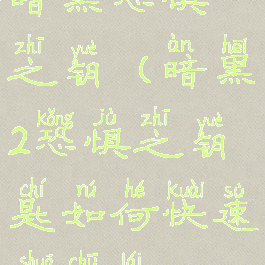 暗黑恐惧
zhī yuè àn hēi
之钥(暗黑
kǒng jù zhī yuè
2恐惧之钥
chí rú hé kuài sù
匙如何快速
shuā chū lái